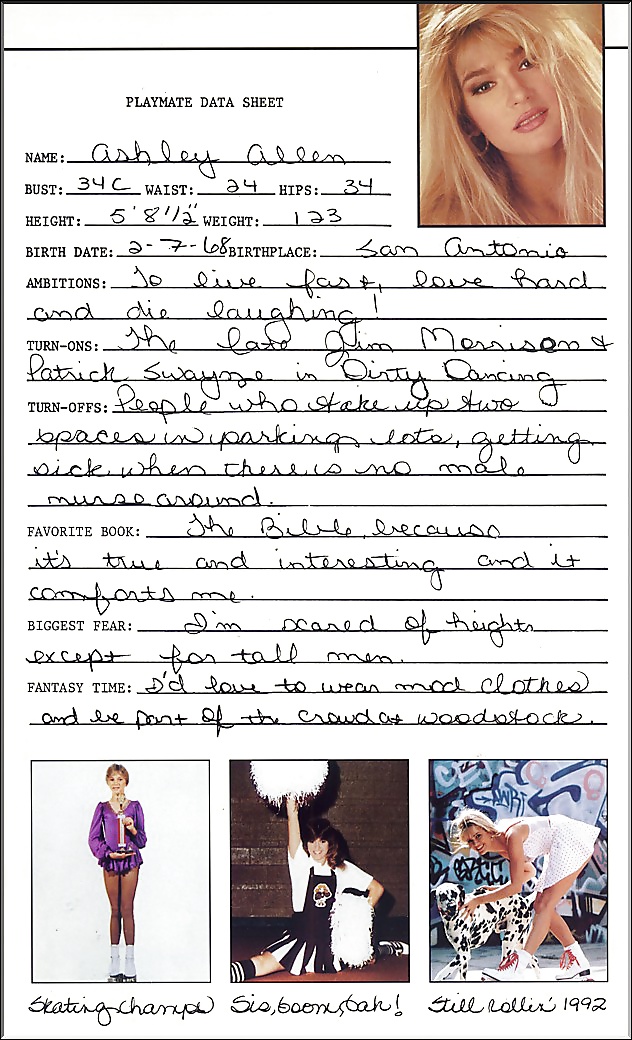 PLAYMATE DATA SHEET
NAME: Ashley Allen
BUST: 34C WAIST: 24 HIPS: 34
HEIGHT: 5' 8 1/2" WEIGHT: 123
BIRTH DATE: 2-7-68 BIRTHPLACE: San Antonio
AMBITIONS: To live fast, love hard
and die laughing!
TURN-ONS: The late Jim Morrison &
Patrick Swayze in Dirty Dancing
TURN-OFFS: People who take up two
spaces in parking lots, getting
sick when there is no male
nurse around.
FAVORITE BOOK: The Bible, because
it's true and interesting and it
comforts me.
BIGGEST FEAR: I'm scared of heights
except for tall men.
FANTASY TIME: I'd love to wear mod clothes
and be part of the crowd at Woodstock.
Skating champs Sis, boom, bah! Still rollin' 1992